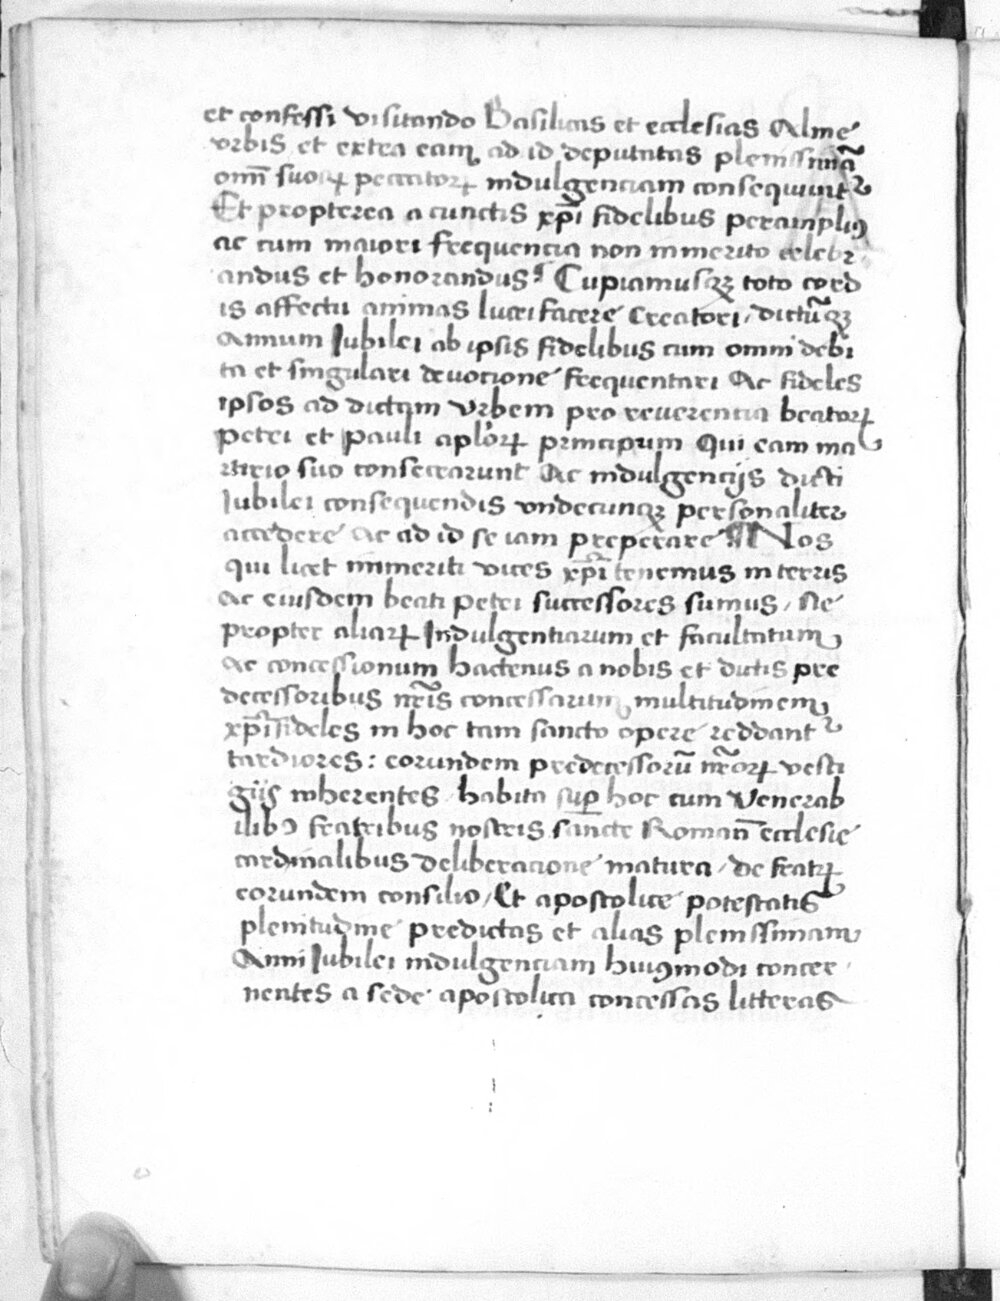 et confessi visitando Basilicas et ecclesias Alme
vrbis et extra eam ad id deputatas plenissimā
om̄ suoꝝ peccatoꝝ indulgenciam consequunt᷑
Et propterea a cunctis xp̄i fidelibus peramplius
ac cum maiori frequencia non inmerito celebr
andus et honorandus Cupiamusqꝫ toto cord
is affectu animas lucrifacere Creatori / dictūqꝫ
Annum Iubilei ab ipsis fidelibus cum omni debi
ta et singulari deuocione frequentari Ac fideles
ipsos ad dictam Vrbem pro reuerentia beatoꝝ
petri et pauli aploꝝ principum Qui eam ma
rtirio suo consecrarunt Ac indulgencijs dicti
Iubilei consequendis vndecunqꝫ personaliter
accedere Ac ad id se iam preperare Nos
qui licet inmeriti vices xp̄i tenemus in terris
Ac eiusdem beati petri successores sumus / Ne
propter aliaꝝ Indulgentiarum et facultatum
Ac concessionum hactenus a nobis et dictis pre
decessoribus nr̄is concessarum multitudinem
xp̄ifideles in hoc tam sancto opere reddant᷑
tardiores : eorundem predecessorū nr̄oꝝ vesti
gijs inherentes habita suꝑ hoc cum Venerab
ilibꝰ fratribus nostris sancte Roman̄ ecclesie
cardinalibus deliberacione matura / de fratꝝ
eorundem consilio / Et apostolice potestatis
plenitudine predictas et alias plenissimam
Anni Iubilei indulgenciam huiꝰmodi concer
nentes a sede apostolica concessas litteras